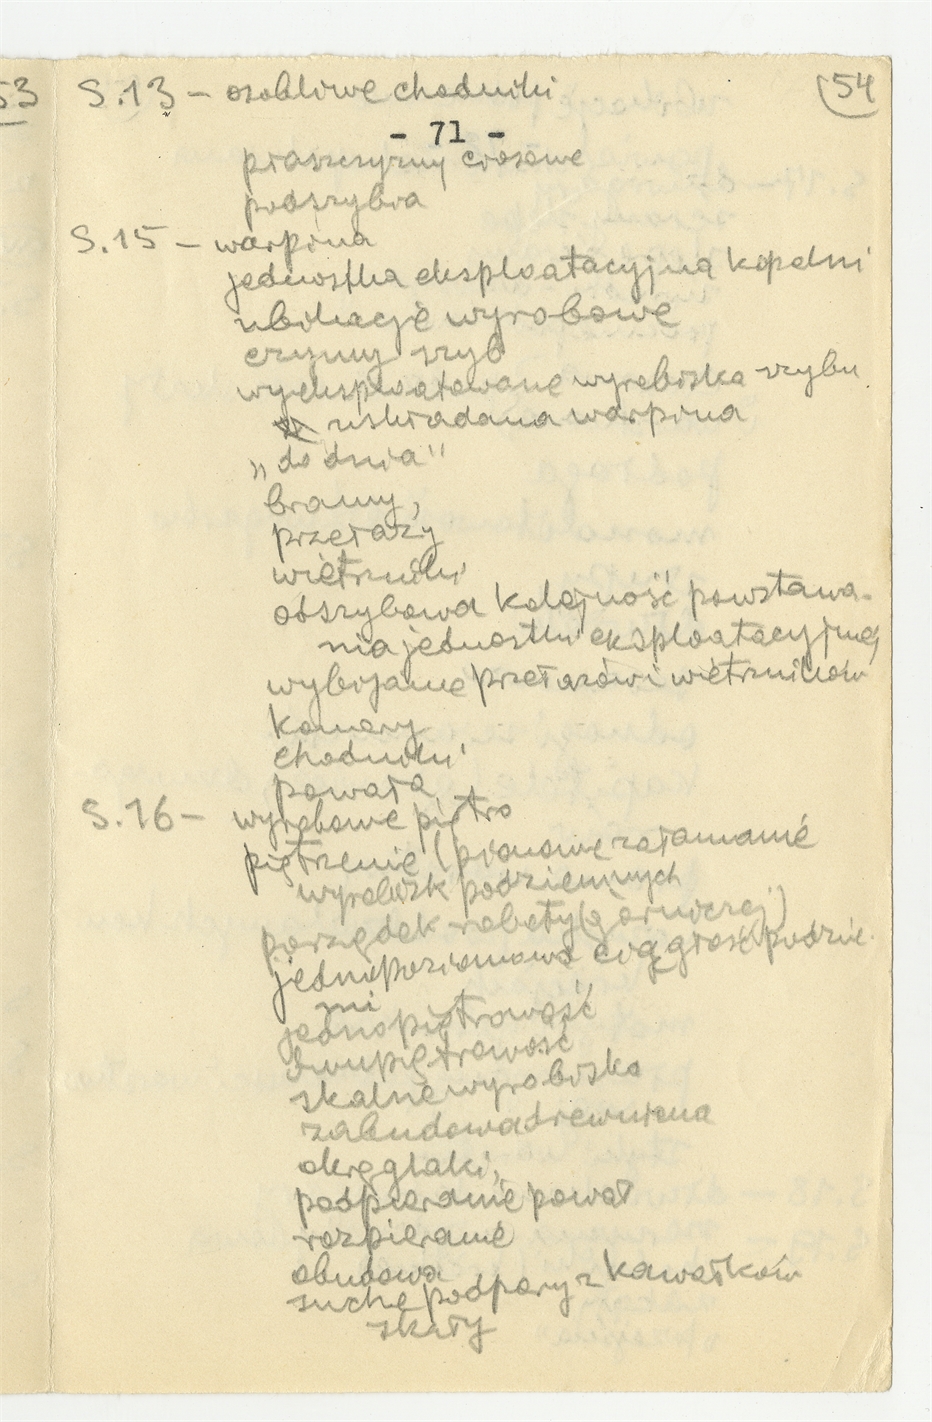 53 S.13 – osobliwe chodniki 54
- 71 -
płaszczyzny ciosowe
podszybia
S.15 – warpina
jednostka eksploatacyjna kopalni
ubikacje wyrobowe
czynny szyb
wyeksploatowane wyrobiska szybu
uskładana warpina
„do dnia"
bramy,
przełazy
wietrzniki
obszybowa kolejność powstawa-
nia jednostki eksploatacyjnej
wybijanie przełazów i wietrzników
komory
chodniki
powała
S.16 – wyrobowe piętro
piętrzenie (pionowe załamanie
wyrobisk podziemnych
porządek roboty (górniczej)
jednopoziomowa ciągłość podzie-
mi
jednopiętrowość
dwupiętrowość
skalne wyrobisko
zabudowa drewniana
okrąglaki,
podpieranie pował
rozpieranie
obudowa
suche podpory z kawałków
skały